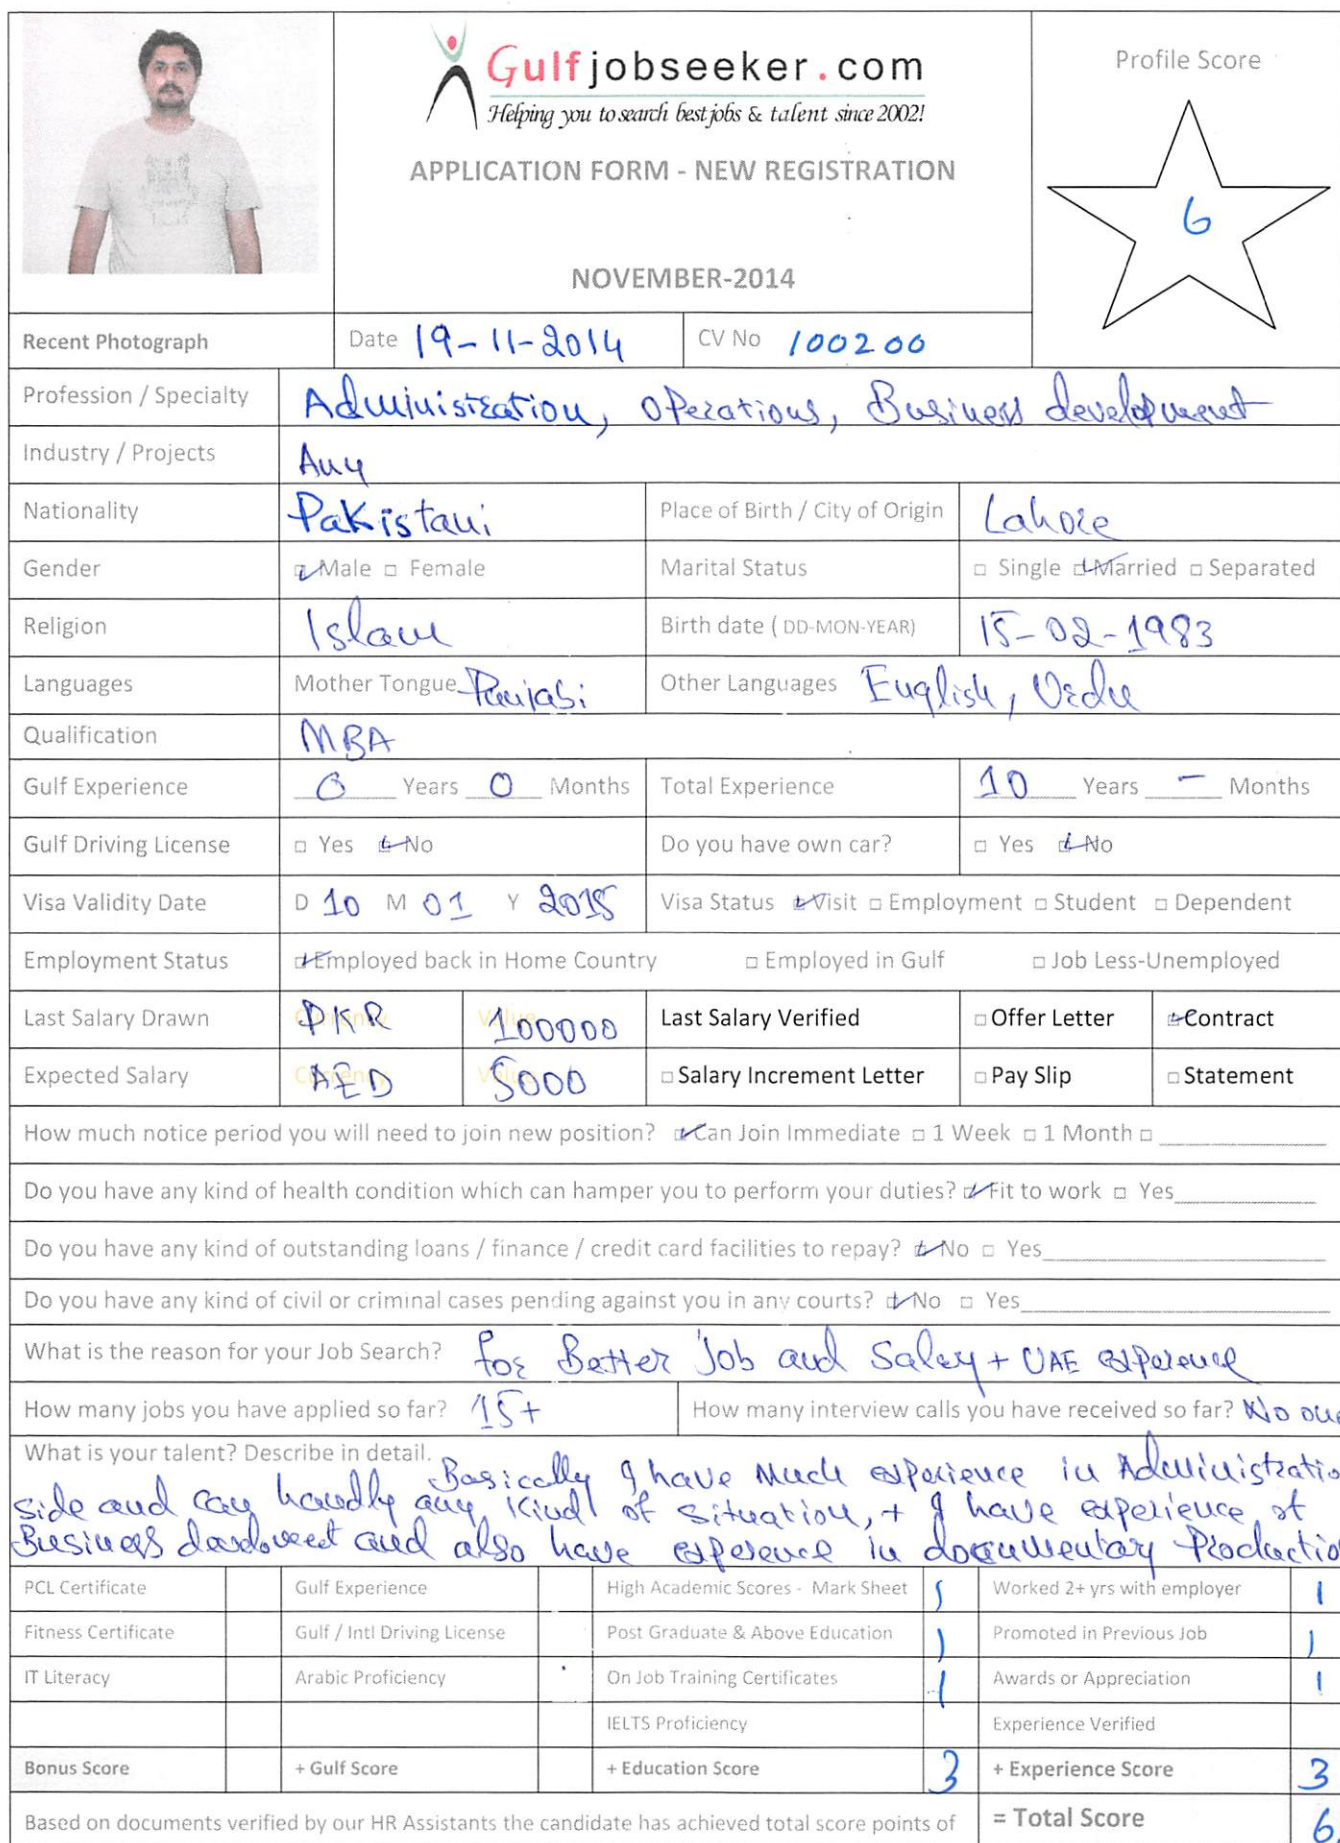 Gulfjobseeker.com
Helping you to search best jobs & talent since 2002!
APPLICATION FORM - NEW REGISTRATION
NOVEMBER-2014
Profile Score
6
Recent Photograph
Date 19-11-2014
CV No 100200
Profession / Specialty Administration, Operations, Business development
Industry / Projects Any
Nationality Pakistani Place of Birth / City of Origin Lahore
Gender Male Female Marital Status Single Married Separated
Religion Islam Birth date ( DD-MON-YEAR) 15-02-1983
Languages Mother Tongue Punjabi Other Languages English, Urdu
Qualification MBA
Gulf Experience 0 Years 0 Months Total Experience 10 Years - Months
Gulf Driving License Yes No Do you have own car? Yes No
Visa Validity Date D 10 M 01 Y 2015 Visa Status Visit Employment Student Dependent
Employment Status Employed back in Home Country Employed in Gulf Job Less-Unemployed
Last Salary Drawn Currency PKR Value 100000 Last Salary Verified Offer Letter Contract
Expected Salary Currency AED Value 5000 Salary Increment Letter Pay Slip Statement
How much notice period you will need to join new position? Can Join Immediate 1 Week 1 Month
Do you have any kind of health condition which can hamper you to perform your duties? Fit to work Yes
Do you have any kind of outstanding loans / finance / credit card facilities to repay? No Yes
Do you have any kind of civil or criminal cases pending against you in any courts? No Yes
What is the reason for your Job Search? for Better Job and Salary + UAE experence
How many jobs you have applied so far? 15+ How many interview calls you have received so far? No one
What is your talent? Describe in detail. Basically I have Much experience in Administratio
side and can handly any kind of situation, + I have experience of
Business and also have experence in documentary Productio
PCL Certificate Gulf Experience High Academic Scores - Mark Sheet 1 Worked 2+ yrs with employer 1
Fitness Certificate Gulf / Intl Driving License Post Graduate & Above Education 1 Promoted in Previous Job 1
IT Literacy Arabic Proficiency On Job Training Certificates 1 Awards or Appreciation 1
IELTS Proficiency Experience Verified
Bonus Score + Gulf Score + Education Score 3 + Experience Score 3
Based on documents verified by our HR Assistants the candidate has achieved total score points of = Total Score 6